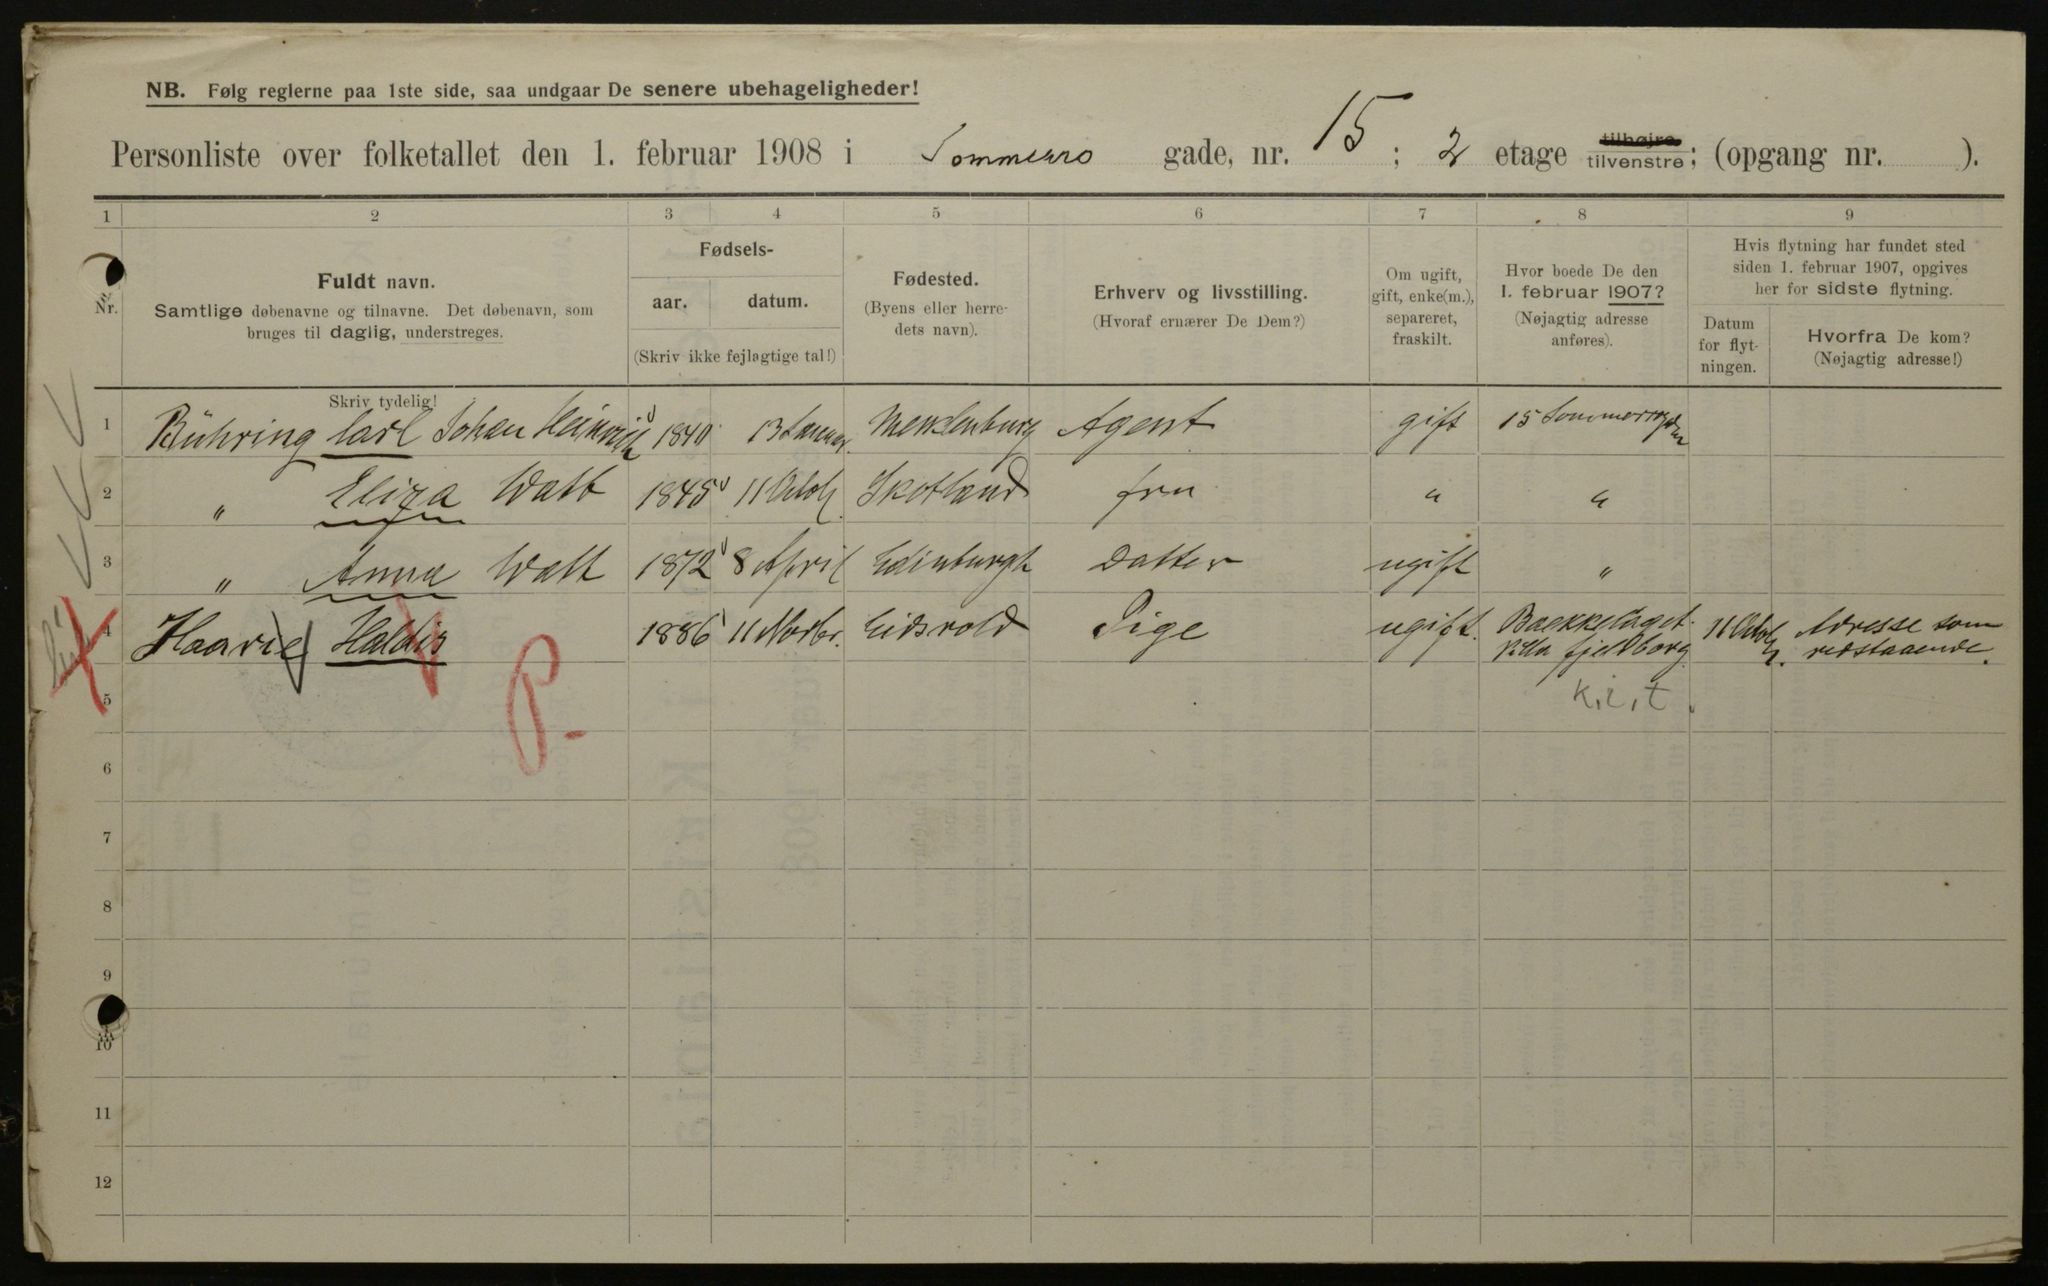 NB. Følg reglerne paa 1ste side, saa undgaar De senere ubehageligheder!
Personliste over folketallet den 1. februar 1908 i Sommerro gade, nr. 15; 2 etage tilhøjre tilvenstre; (opgang nr. ).
1 2 3 4 5 6 7 8 9
Nr.
Fuldt navn.
Samtlige døbenavne og tilnavne. Det døbenavn, som
bruges til daglig, understreges.
Skriv tydelig!
Fødsels-
aar. datum.
(Skriv ikke fejlagtige tal!)
Fødested.
(Byens eller herre-
dets navn).
Erhverv og livsstilling.
(Hvoraf ernærer De Dem?)
Om ugift,
gift, enke(m.),
separeret,
fraskilt.
Hvor boede De den
1. februar 1907?
(Nøjagtig adresse
anføres).
Hvis flytning har fundet sted
siden 1. februar 1907, opgives
her for sidste flytning.
Datum
for flyt-
ningen.
Hvorfra De kom?
(Nøjagtig adresse!)
1 Bühring Carl Johan Heinrich 1840 13 Januar Mecklenburg Agent gift 15 Sommerrogaden
2 " Eliza Watt 1845 11 Octob. Skotland fru " "
3 " Anna Watt 1872 8 April Edinburgh Datter ugift "
4 Haavie Haldis 1886 11 Novbr. Eidsvold Pige ugift. Bækkelaget. Villa Fjeldborg 11 Octob. Adresse som vedstaaende.
P.
5 k.i.t.
6
7
8
9
10
11
12